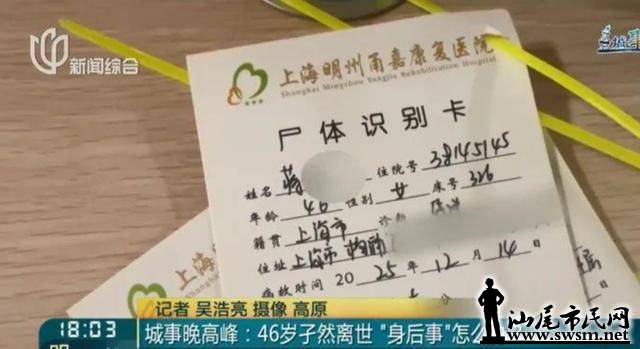 新闻综合
上海明州甬嘉康复医院
Shanghai Mingzhou Yongjia Rehabilitation Hospital
尸体识别卡
姓名 蒋 住院号 38145145
年龄 46 性别 女 床号 326
籍贯 上海市 诊断
住址 上海市
病故时间 2025年12月14日
上海
记者 吴浩亮 摄像 高原
18:03 城事晚高峰：46岁孑然离世 "身后事"怎么
汕尾市民网
www.swsm.net